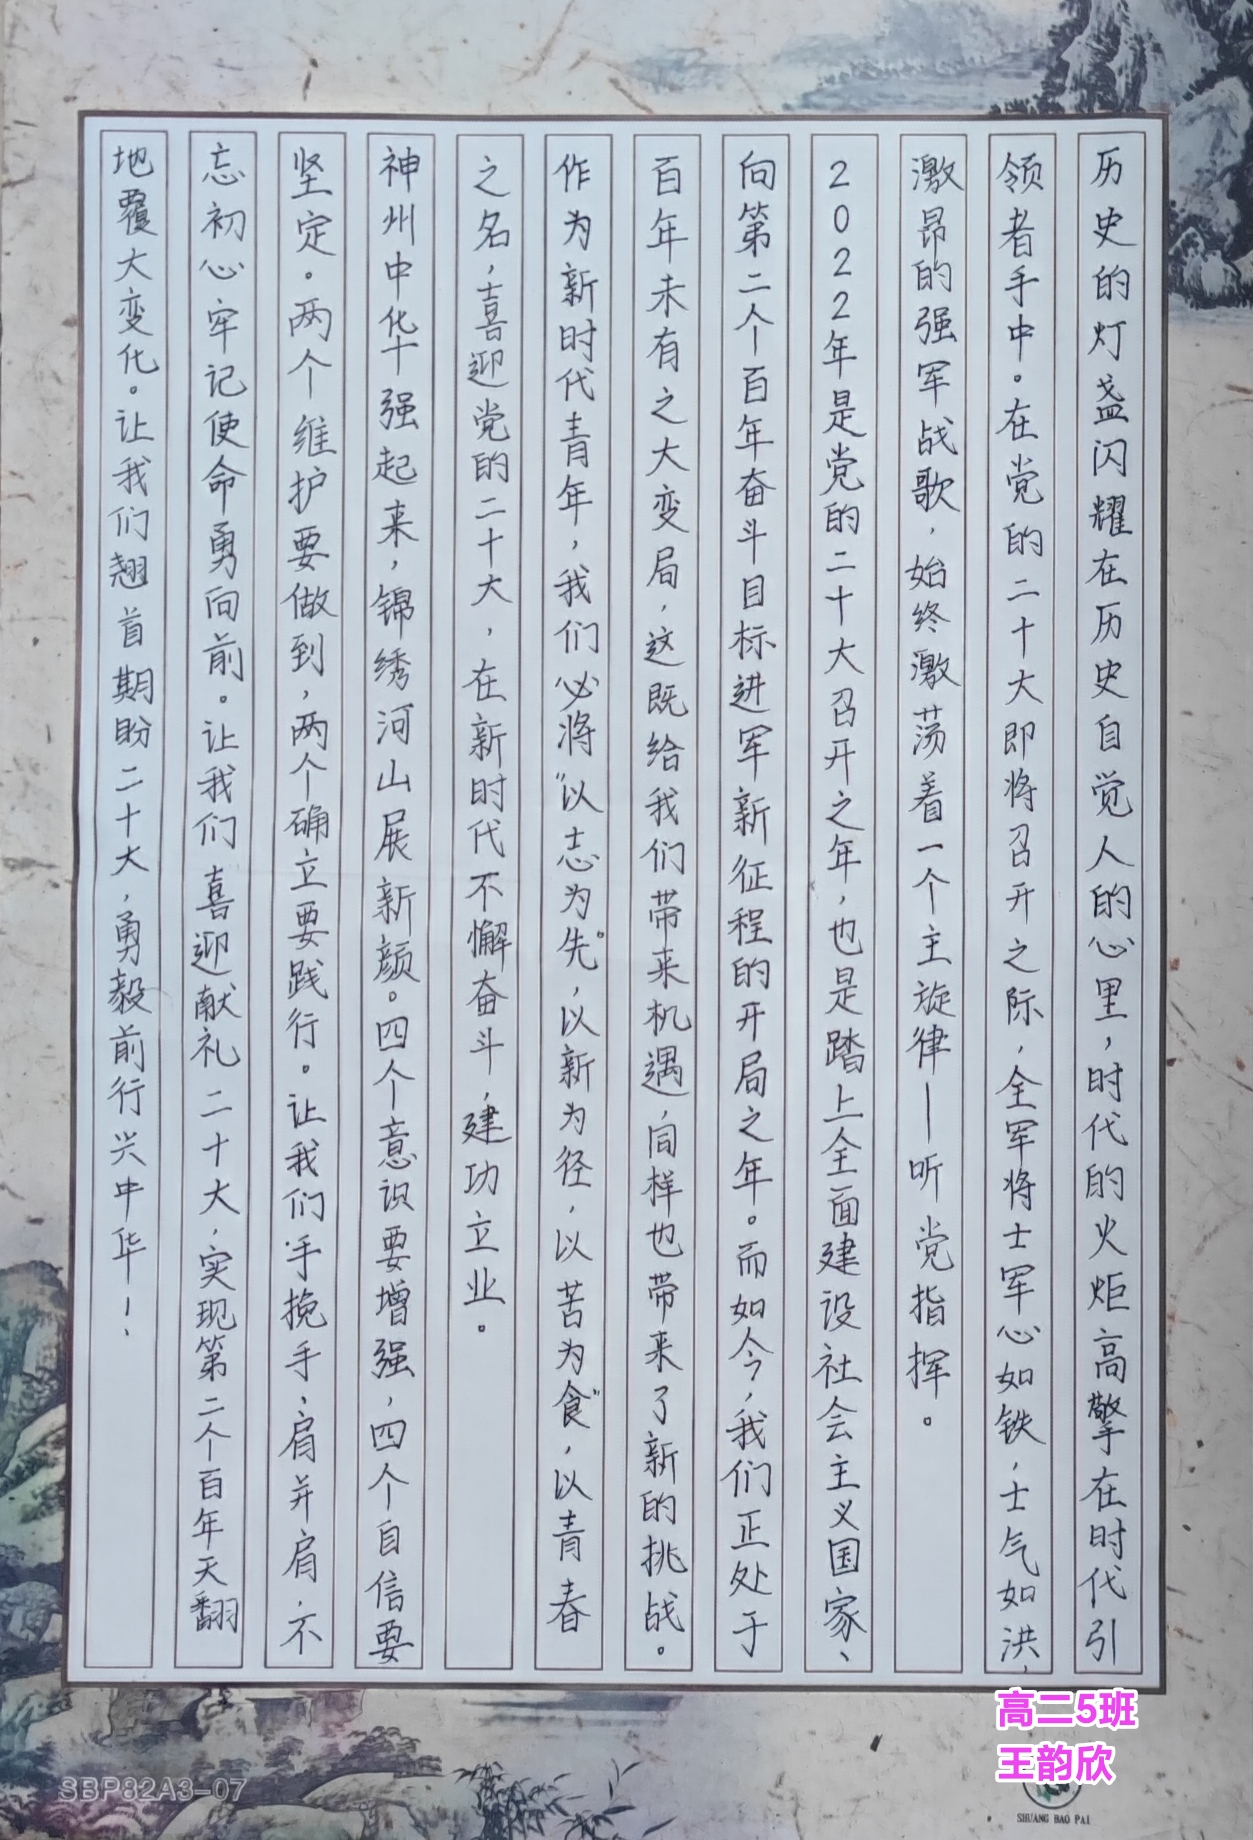 历史的灯盏闪耀在历史自觉人的心里，时代的火炬高擎在时代引
领者手中。在党的二十大即将召开之际，全军将士军心如铁，士气如洪，
激昂的强军战歌，始终激荡着一个主旋律——听党指挥。
2022年是党的二十大召开之年，也是踏上全面建设社会主义国家、
向第二个百年奋斗目标进军新征程的开局之年。而如今，我们正处于
百年未有之大变局，这既给我们带来机遇，同样也带来了新的挑战。
作为新时代青年，我们必将“以志为先。，以新为径，以苦为食”，以青春
之名，喜迎党的二十大，在新时代不懈奋斗，建功立业。
神州中华强起来，锦绣河山展新颜。四个意识要增强，四个自信要
坚定。两个维护要做到，两个确立要践行。让我们手挽手，肩并肩，不
忘初心牢记使命勇向前。让我们喜迎献礼二十大，实现第二个百年天翻
地覆大变化。让我们翘首期盼二十大，勇毅前行兴中华！
高二5班
王韵欣
SBP82A3-07
SHUANG BAO PAI